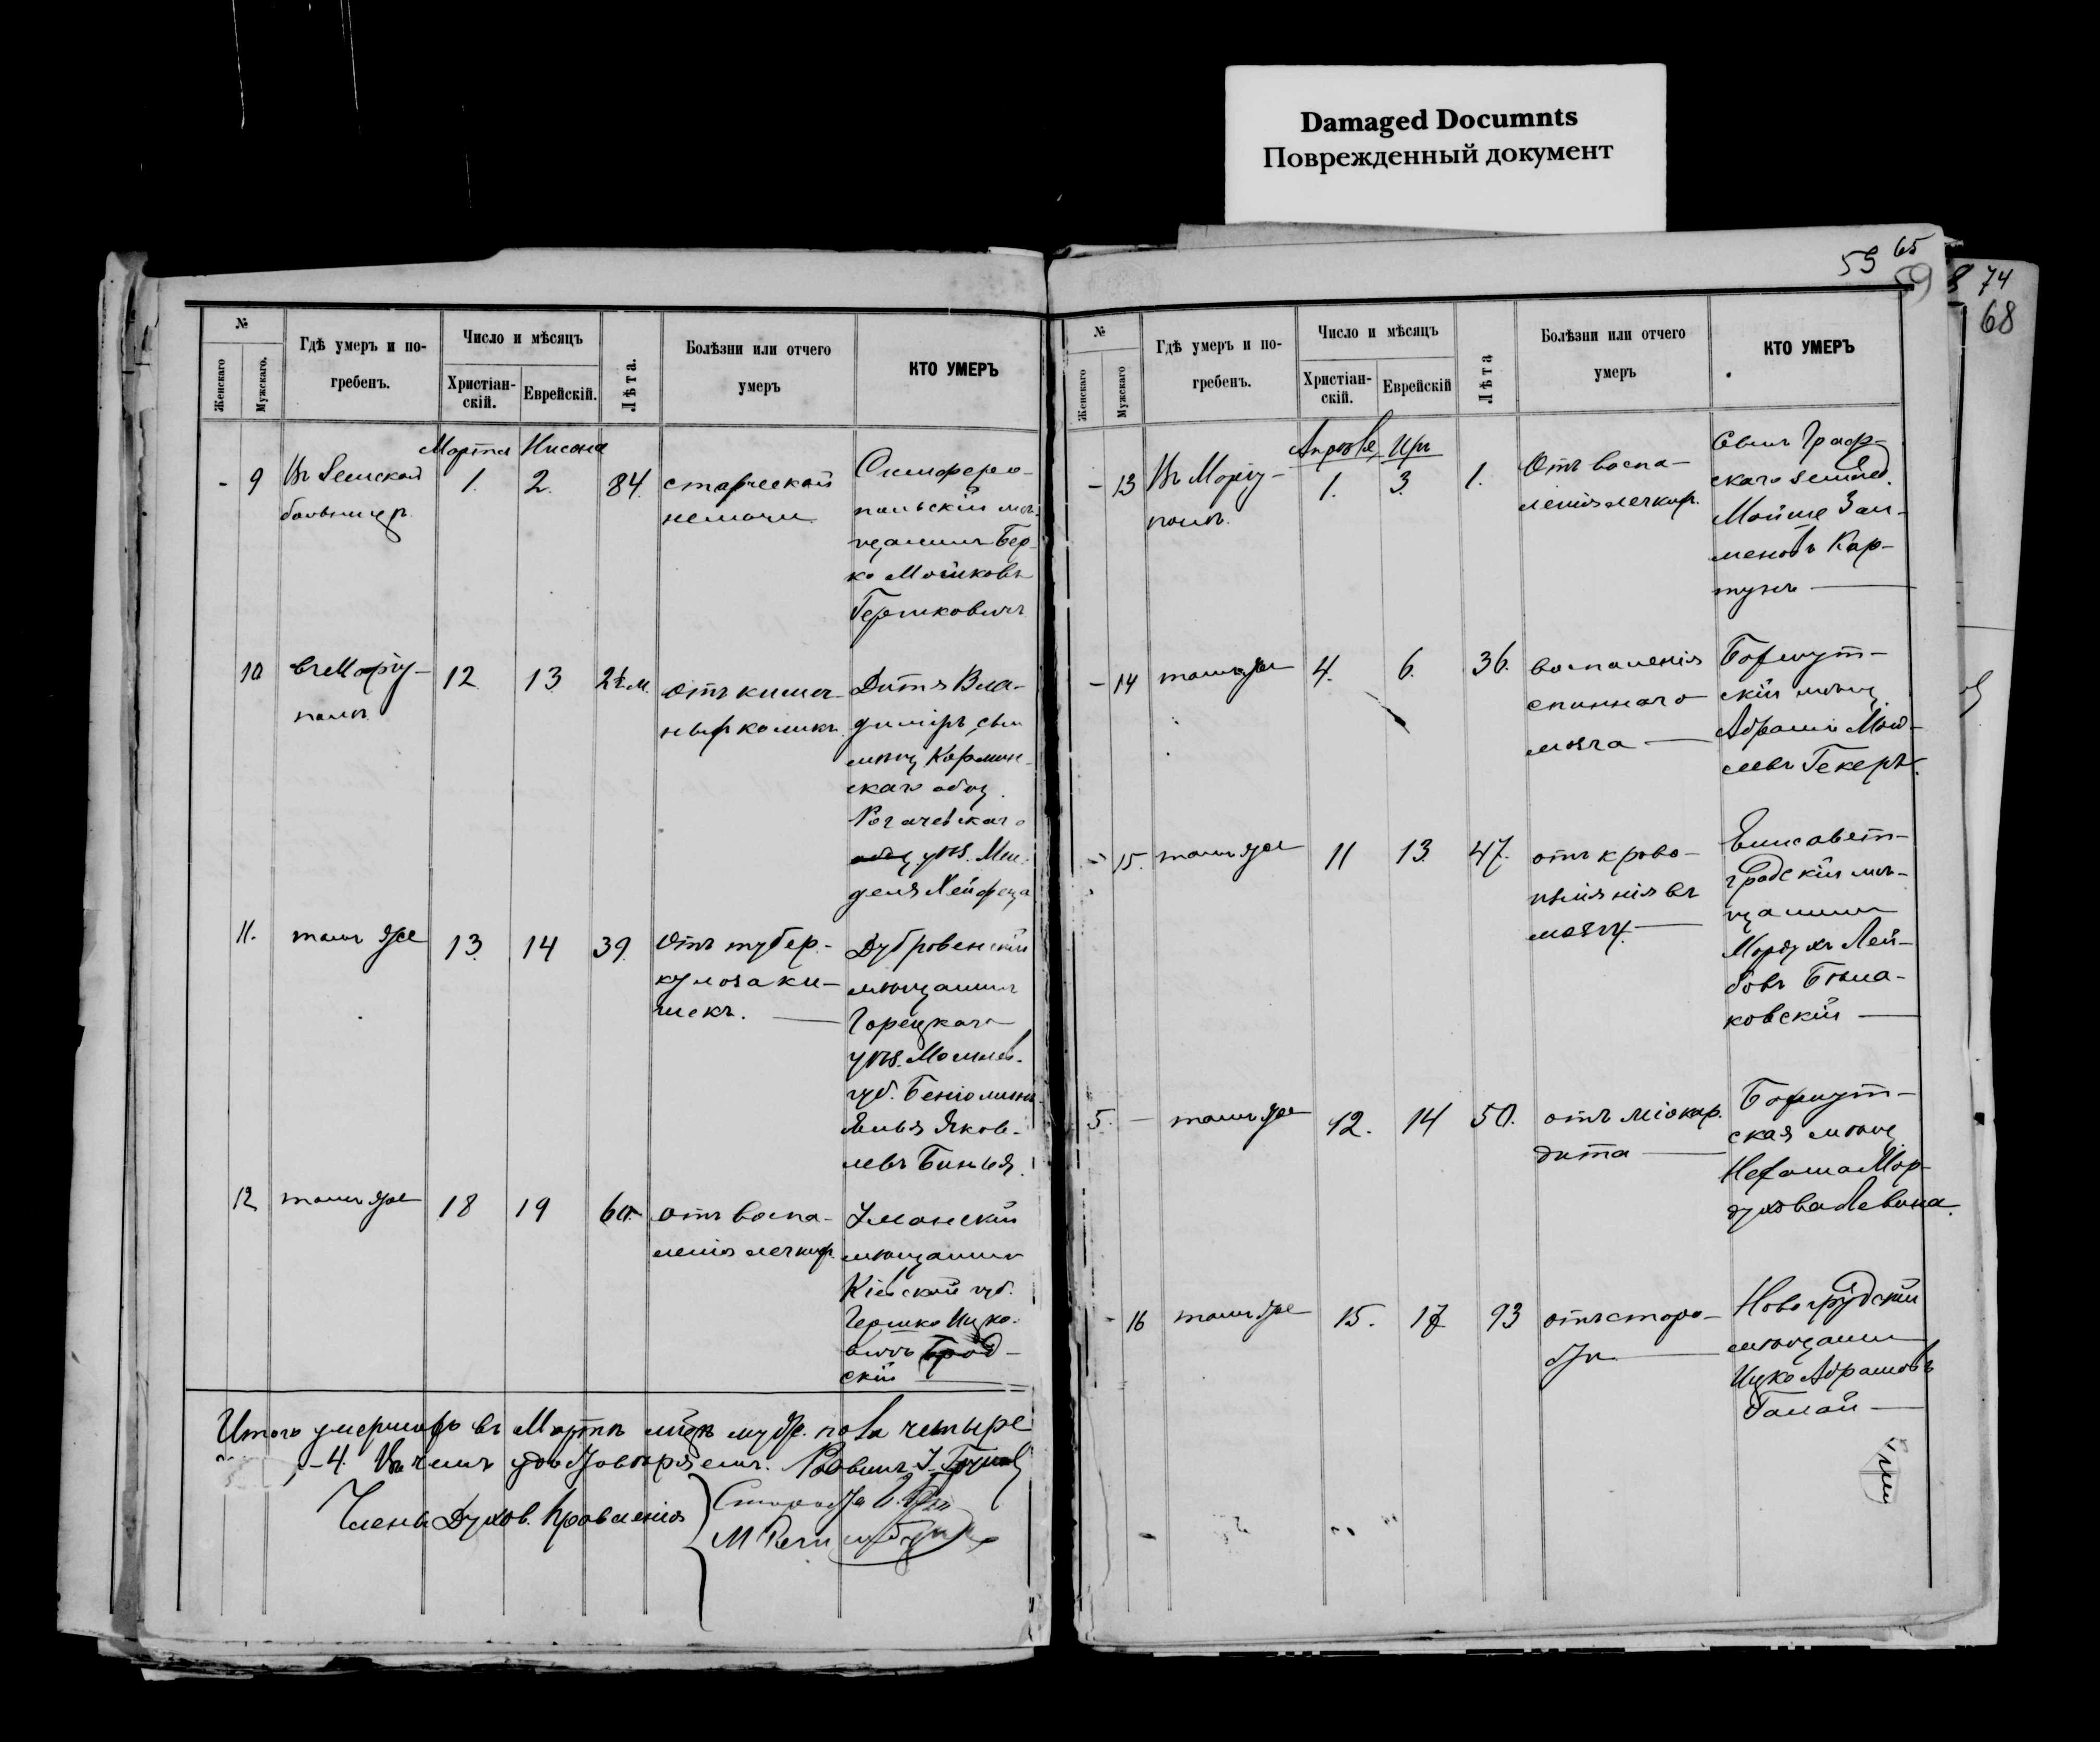 Damaged Documnts
Поврежденный документ
59 65
59
74
68
№
Женскаго
Мужскаго.
Гдѣ умеръ и по-
гребенъ.
Число и мѣсяцъ
Христіан-
скій.
Еврейскій.
Лѣта.
Болѣзни или отчего
умеръ
КТО УМЕРЪ
Марта Нисана
- 9 Въ Земской
больницѣ
1. 2. 84.
старческой
немочи
Симферо-
польскій мѣ-
щанинъ Бер-
ко Мошковъ
Гершковичъ
10 въ Маріу-
полѣ
12 13 2½ м.
отъ кишеч-
ныхъ коликъ
Дитя Вла-
диміръ, сын
мѣщ Кармин-
скаго общ.
Рогачевскаго
уѣз. Мен-
деля Хейфеца
11. тамъ же 13. 14 39.
отъ тубер-
кулоза ки-
шекъ.
Дубровенскій
мѣщанинъ
Горецкаго
уѣз. Могилев.
губ. Беніоминъ
Яков-
левъ
12 тамъ же 18 19 60.
отъ воспа-
ленія легких.
Уманскій
мѣщанинъ
Кіевской губ.
Гершко Ицко-
вичъ Брод-
скій
Итого умершихъ въ Мартѣ мѣсцѣ муж. пола четыре
-4. Въ чемъ удостовѣряемъ. Раввинъ
Члены Духов. Правленія
Староста
№
Женскаго
Мужскаго
Гдѣ умеръ и по-
гребенъ.
Число и мѣсяцъ
Христіан-
скій.
Еврейскій
Лѣта
Болѣзни или отчего
умеръ
КТО УМЕРЪ
Апрѣля Иръ
- 13 Въ Маріу-
полѣ.
1. 3. 1.
Отъ воспа-
ленія легких.
Сынъ Граф-
скаго землед.
Мойше Зал-
мановъ Кар-
тунъ
- 14 тамъ же 4. 6. 36.
воспаленія
спиннаго
мозга
Бобруй-
скій мѣщ
Абрамъ
Гекеръ.
- 15. тамъ же 11 13. 47.
отъ крово-
изліянія въ
мозгу.
Елисавет-
градскій мѣ-
щанинъ
Мордухъ Лей-
бовъ
ковскій
5. - тамъ же 12. 14 50.
отъ міокар-
дита
ская мѣщ
Нехама Мор-
духова Левина.
- 16 тамъ же 15. 17 93
отъ старо-
сти
Новогрудскій
мѣщанинъ
Ицко Абрамовъ
Галай